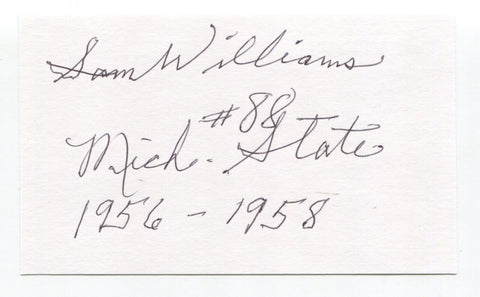 Sam Williams
#88
Mich. State
1956 - 1958